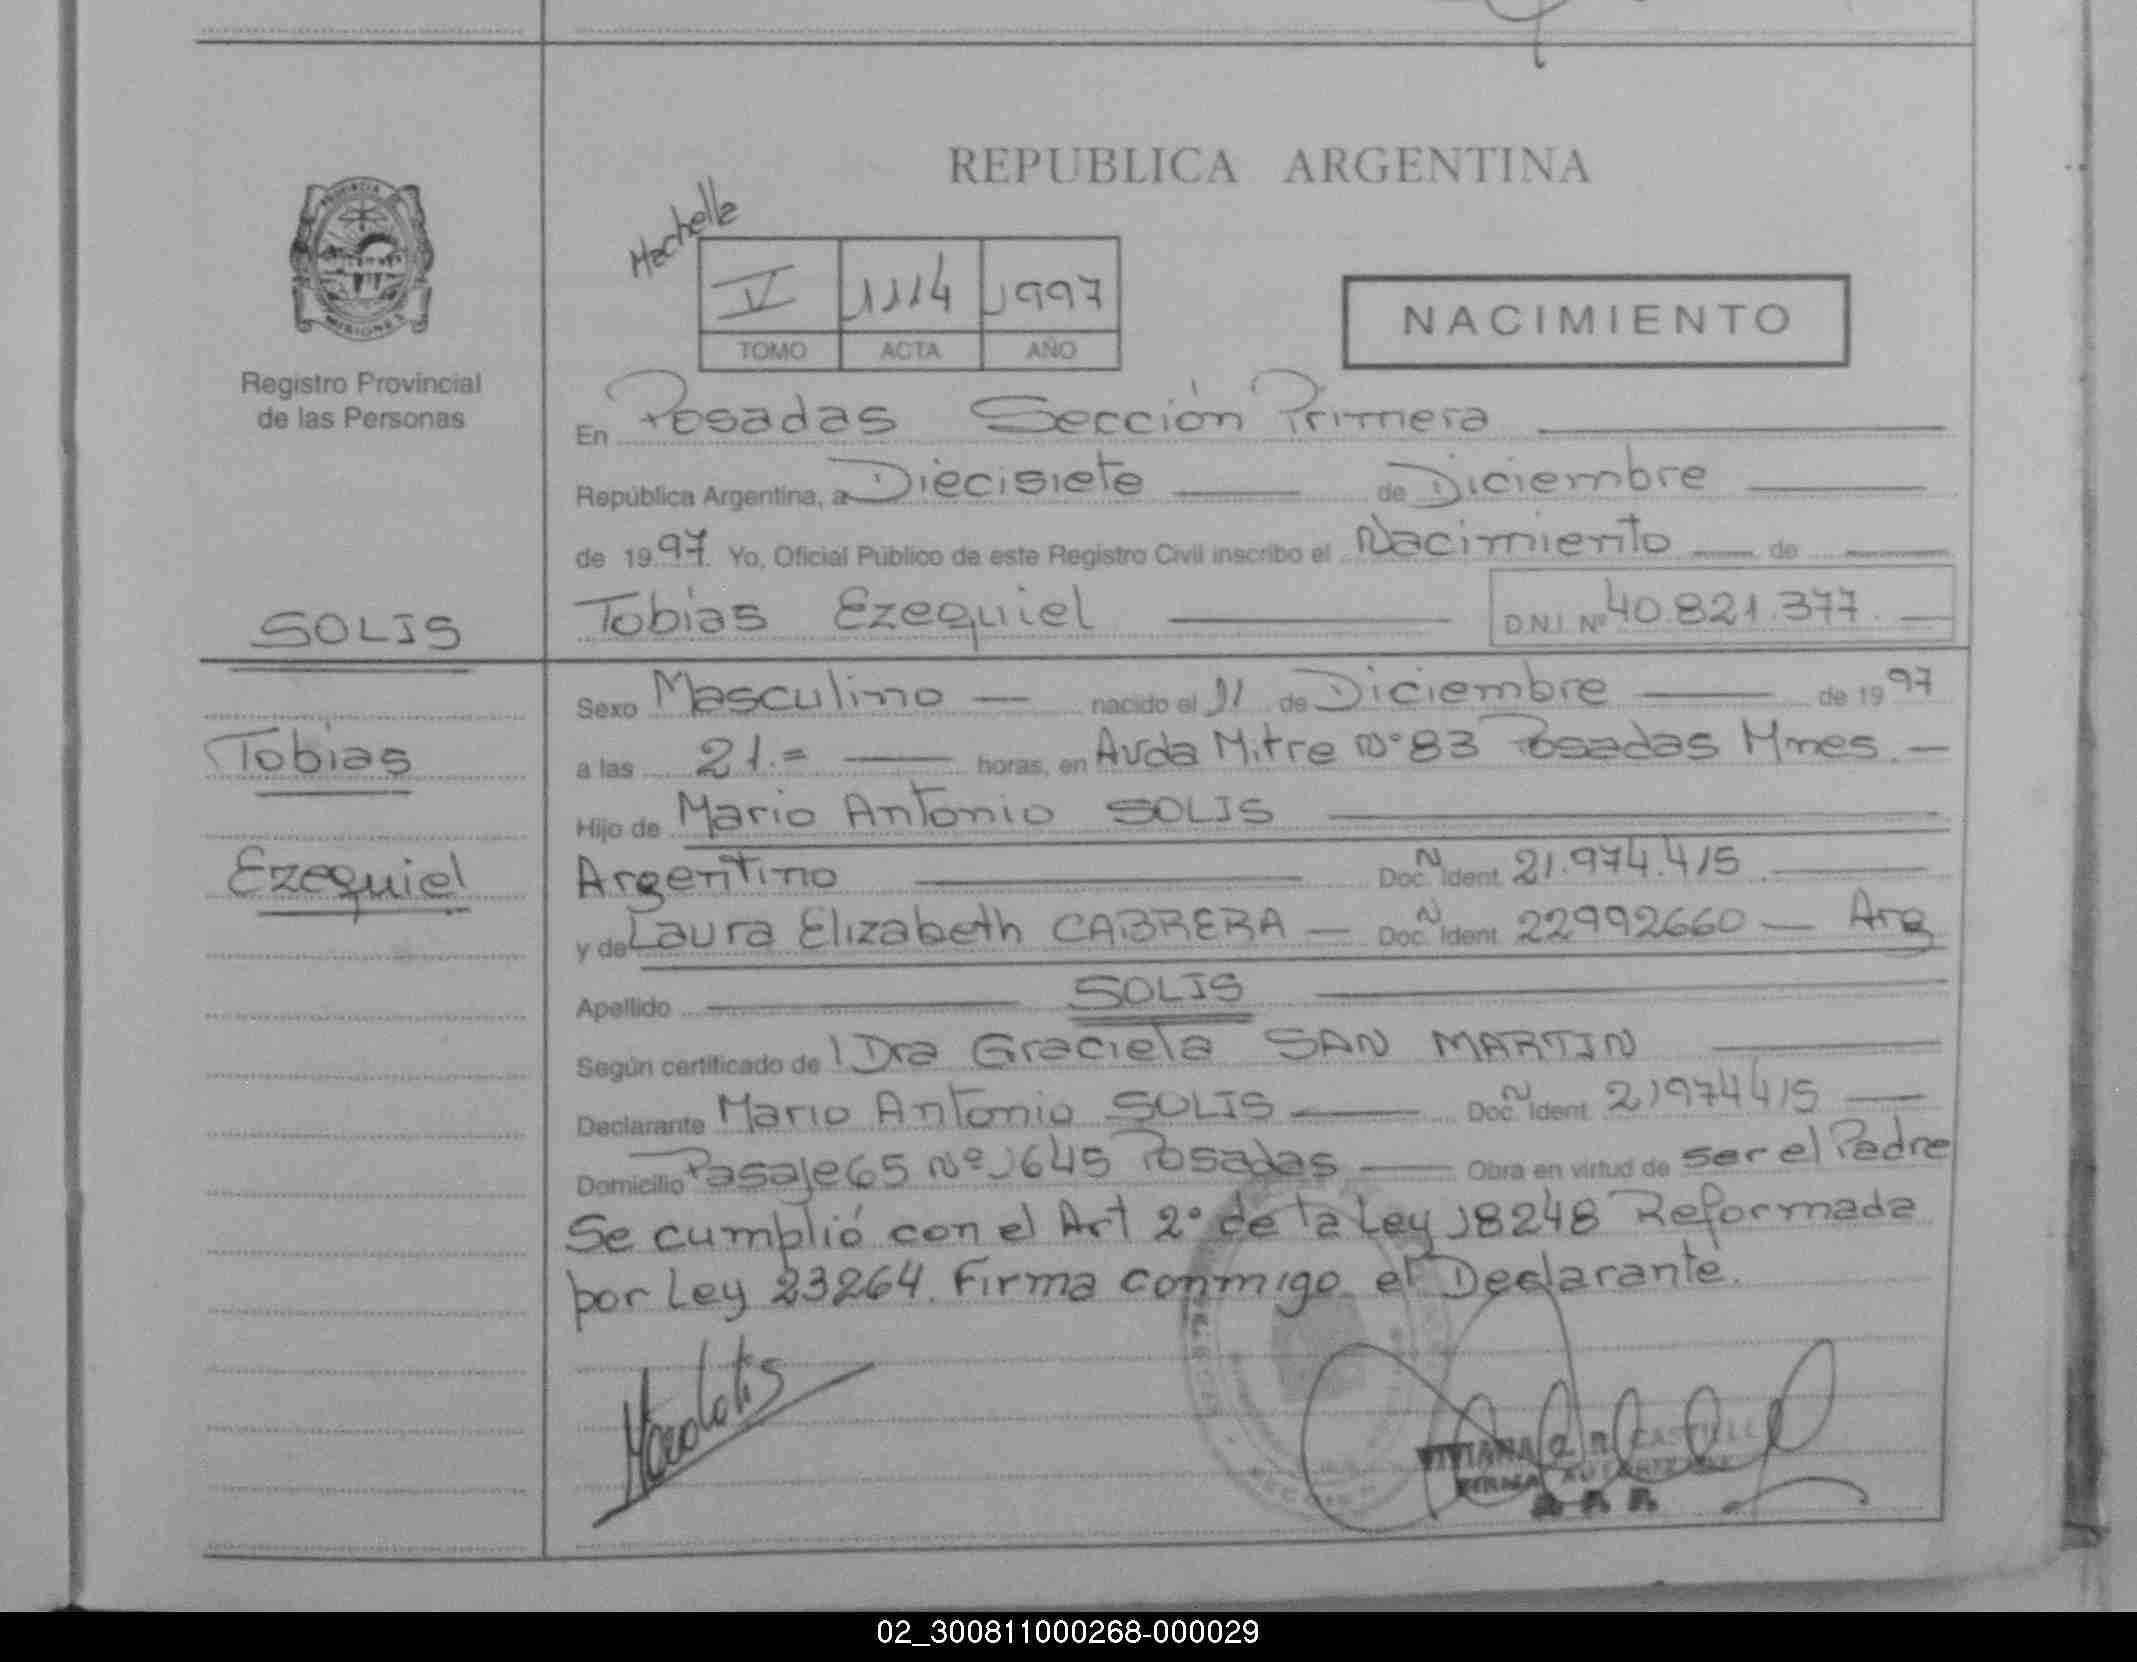 REPUBLICA ARGENTINA
PROVINCIA
MISIONES
Registro Provincial
de las Personas
Machella
V 1114 1997
TOMO ACTA AÑO
NACIMIENTO
En Posadas Sección Primera
República Argentina, a Diecisiete de Diciembre
de 1997. Yo, Oficial Público de este Registro Civil inscribo el Nacimiento de
SOLIS
Tobias Ezequiel D.N.I. Nº 40.821.377.
Sexo Masculino nacido el 11 de Diciembre de 1997
Tobias
a las 21.= horas, en Avda Mitre Nº 83 Posadas Mnes.
Hijo de Mario Antonio SOLIS
Ezequiel
Argentino Doc. N Ident. 21.974.415
y de Laura Elizabeth CABRERA Doc. N Ident. 22992660 Arg
Apellido SOLIS
Según certificado de Dra Graciela SAN MARTIN
Declarante Mario Antonio SOLIS Doc. N Ident. 21974415
Domicilio Pasaje 65 Nº 1645 Posadas Obra en virtud de ser el Padre
Se cumplió con el Art 2º de la Ley 18248 Reformada
por Ley 23264. Firma conmigo el Declarante.
VIVIANA CASTILL
FIRMA AUTORIZADA
02_300811000268-000029